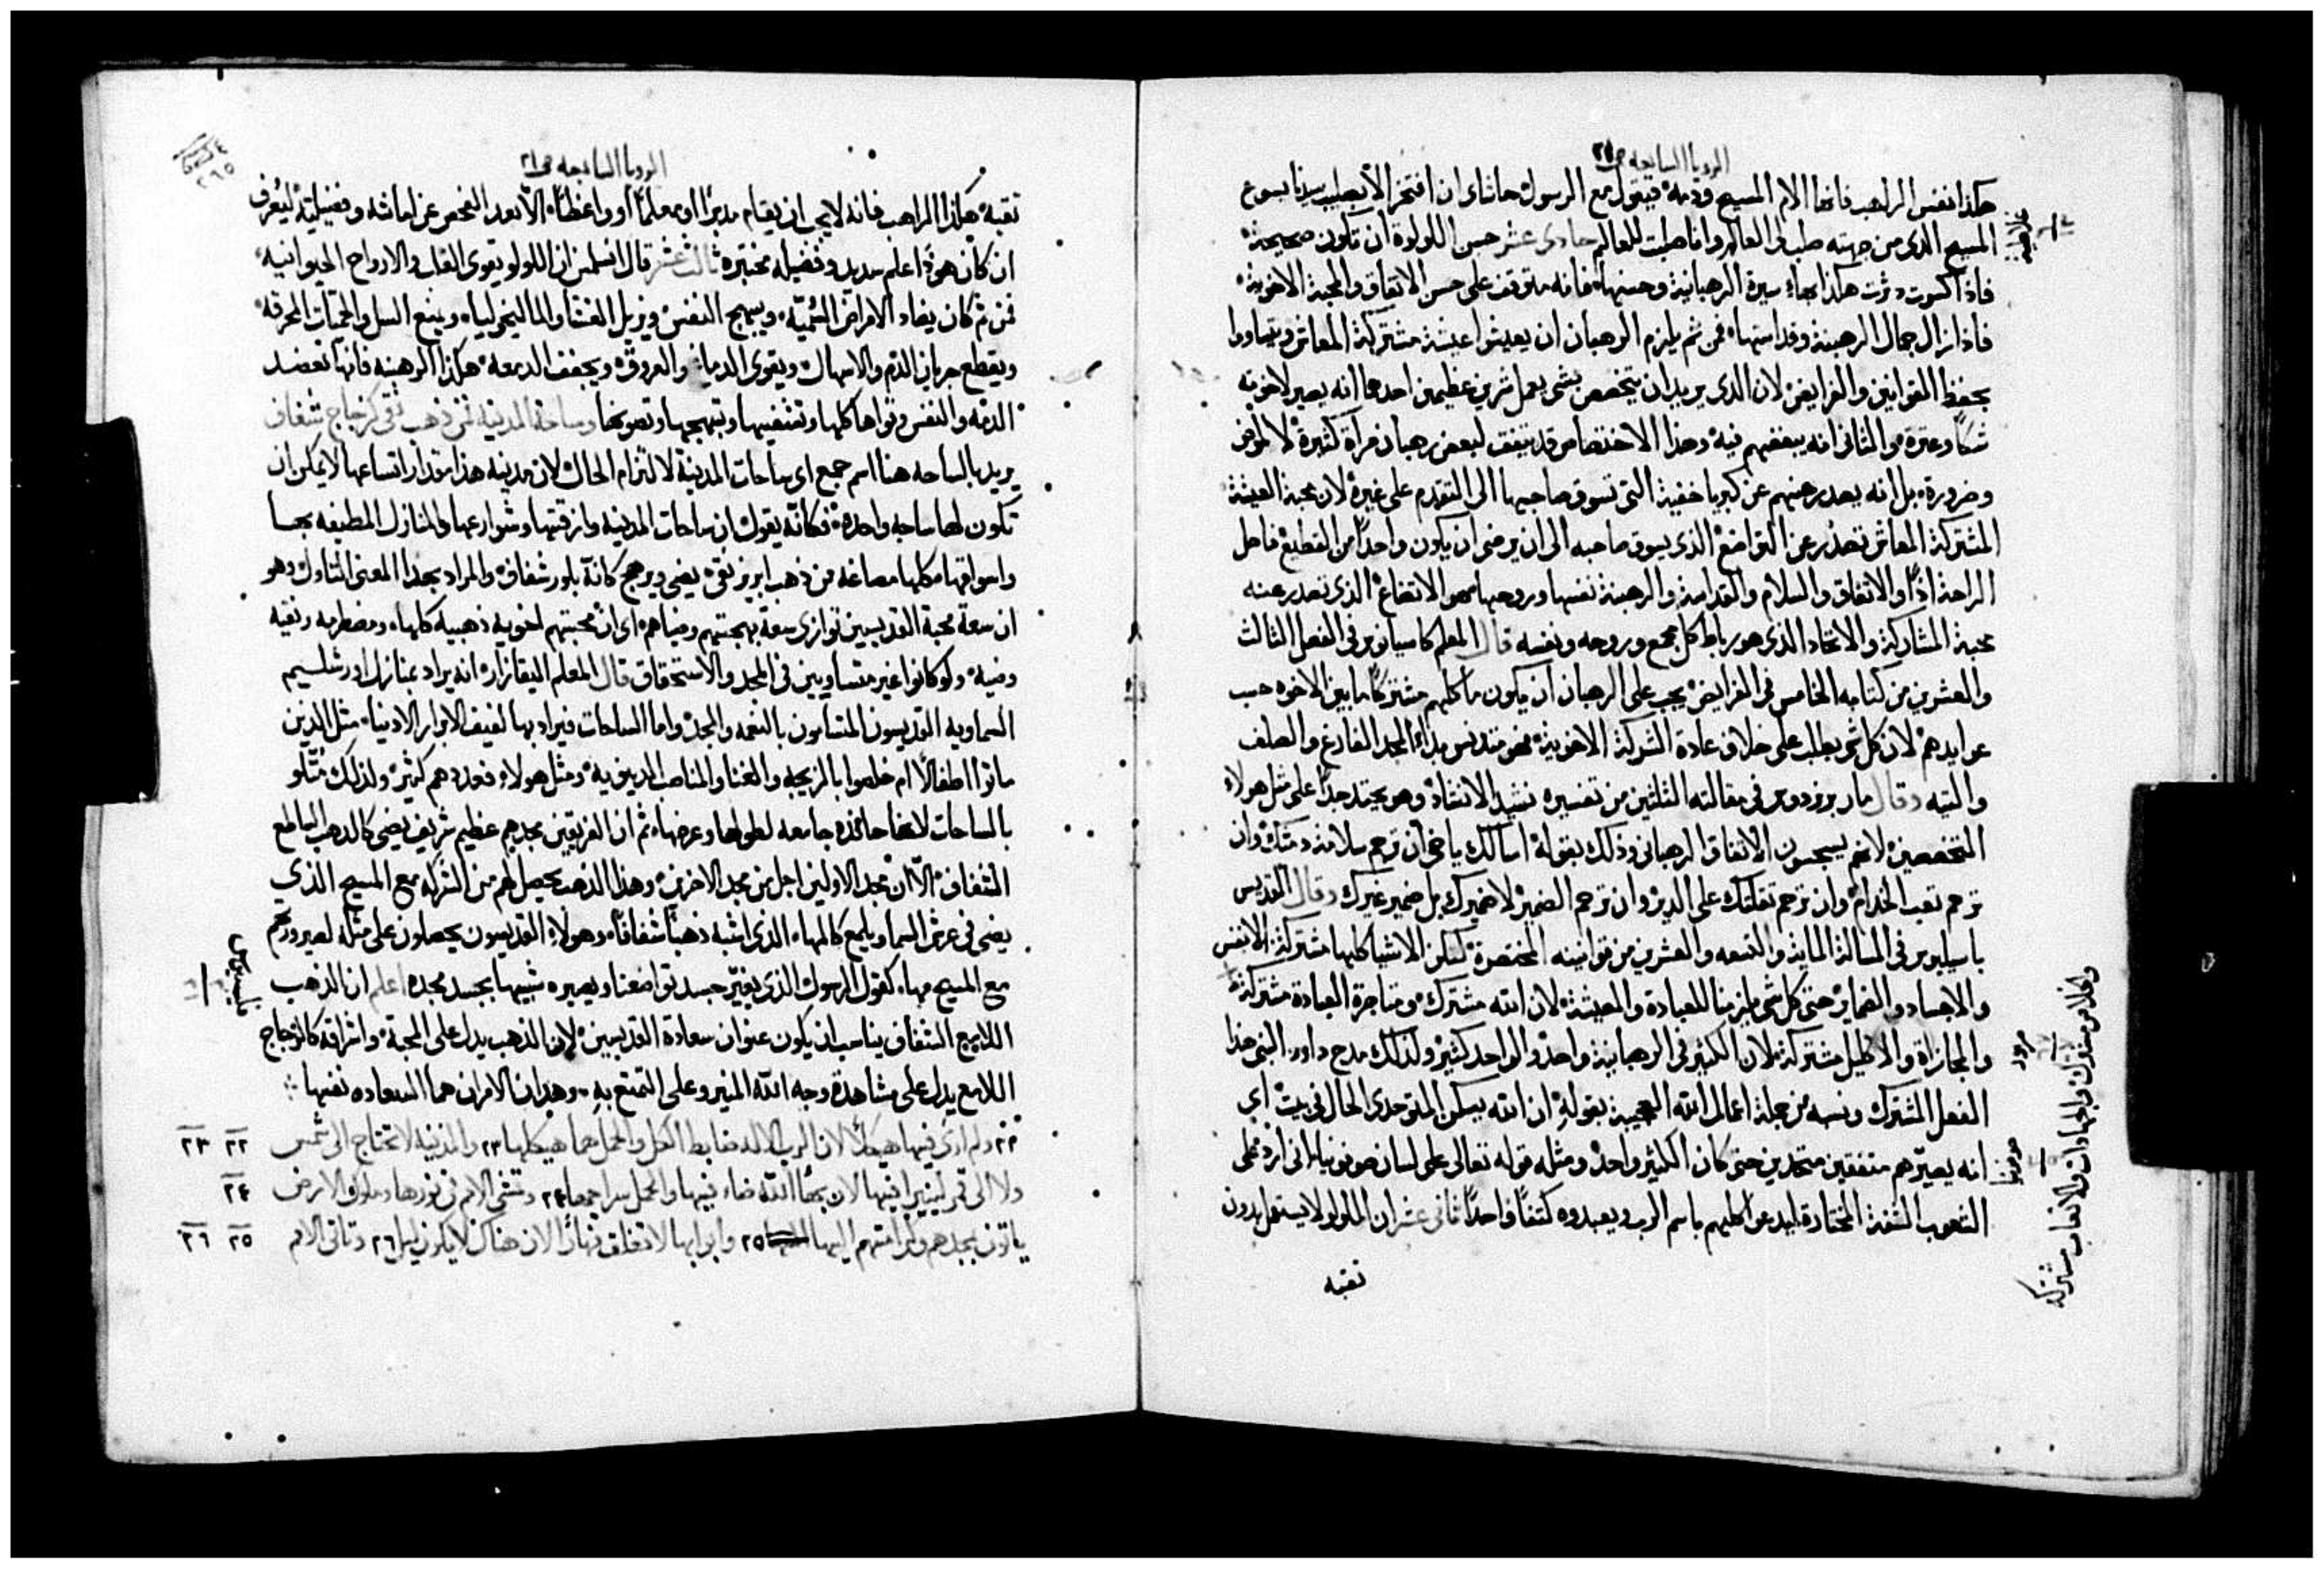 الرويا السابعه ص٢١
هكذا نفس الراهب فانها الام المسيح ودمه فيقول مع الرسول حاشاى ان افتخر الا بصليب سيدنا يسوع
المسيح الذى من جهته صلب لى العالم وانا صلبت للعالم حادى عشر حسن اللولوة ان تكون صحيحة
فاذا كسرت دثرت هكذا بهاء سيرة الرهبانية وحسنها فانه متوقف على حسن الاتفاق والمحبة الاخوية
فاذا زال جمال الرهبنة وقداستها فمن ثم يلزم الرهبان ان يعيشوا عيشة مشتركة المعاش ويتساووا
بحفظ القوانين والفرايض لان الذى يريد ان يتخصص بشى يعمل شرين عظيمين احدهما انه يصير لاخوته
شكا وعثرة والثانى انه يبغضهم فيه وهذا الاختصاص قد يتفق لبعض رهبان مرات كثيرة لا لمرض
وضرورة بل انه يصدر منهم عن كبريا خفية التى تسوق صاحبها الى التقدم على غيره لان محبة العيشة
المشتركة المعاش تصدر عن التواضع الذى يسوق صاحبه الى ان يرضى ان يكون واحدا من القطيع فاصل
الراحة اذا والاتفاق والسلام والقداسة والرهبنة نفسها وروحها هو الاتضاع الذى تصدر عنه
محبة المشاركة والاتحاد الذى هو رباط كل مجمع وروحه ونفسه قال المعلم كاسيانوس فى الفصل الثالث
والعشرين من كتابه الخامس فى الفرايض يجب على الرهبان ان يكون ماكلهم مشتركا ما بين الاخوه حسب
عوايدهم لان كل شى يطلب على خلاف عادة الشركة الاخوية فهو متدنس بداء المجد الفارغ والصلف
والتيه وقال مار برنردوس فى مقالته الثلثين من تفسيره نشيد الانشاد وهو يحتد جدا على مثل هولاء
المتخصصين لانهم يسجسون الاتفاق الرهبانى وذلك بقوله اسالك ياخى ان ترحم سلامة دمتك وان
ترحم تعب الخدام وان ترحم تقلتك على الدير وان ترحم الضمير لا ضميرك بل ضمير غيرك وقال القديس
باسيليوس فى المسالة الماية والتسعه والعشرين من قوانينه المختصرة لتكن الاشيا كلها مشتركة الانفس
والاجساد والضماير حتى كل شى يلزمنا للعبادة والمعيشة لان الله مشترك ومتاجرة العبادة مشتركة
والمجازاة والاكليل مشتركة لان الكثير فى الرهبانية واحد والواحد كثير ولذلك مدح داود النبى هذا
الفعل المشترك ونسبه من جملة اعمال الله العجيبة بقوله ان الله يسكن المتوحدى الحال فى بيت اى
انه يصيرهم متفقين متحدين حتى كان الكثير واحد ومثله قوله تعالى على لسان صوفونيا انى ارد على
الشعوب الشفة المختارة ليدعوا كلهم باسم الرب ويعبدوه كتفا واحدا ثانى عشر ان اللولو لا يستعمل بدون
ثقبه
داود
صوفونيا
والخلاص مشترك والجهادات والاتعاب مشتركة
الرويا السابعه ص٢١
٢٦٥
ثقبه هكذا الراهب فانه لا يجب ان يقام مدبرا او معلما او واعظا الا بعد الفحص عن امانته وفضيلته ليعرف
ان كان هو ذا علم سديد وفضيله مختبره ثالث عشر قال انسلمس ان اللولو يقوى القلب والارواح الحيوانيه
فمن ثم كان يضاد الامراض السميه ويبهج النفس ويزيل الغشا والماليخوليا ويمنع السل والحميات المحرقه
ويقطع جريان الدم والاسهال ويقوى الدماغ والعروق ويجفف الدمعه هكذا الرهبنه فانها تعضد
الذمه والنفس وقواها كلها وتشفيها وتبهجها وتصونها وساحة المدينه من ذهب نقى كزجاج شفاف
يريد بالساحه هنا اسم جمع اى ساحات المدينة لالتزام الحال لان مدينه هذا مقدار اتساعها لا يمكن ان
تكون لها ساحه واحده فكانه يقول ان ساحات المدينه وازقتها وشوارعها والمنازل المطيفه بها
واسواقها كلها مصاغه من ذهب ابريز نقى يضى ويرهج كانه بلور شفاف والمراد بهذا المعنى التاول وهو
ان سعة محبة القديسين توازى سعة بهجتهم وضياهم اى ان محبتهم اخويه ذهبيه كلها ومضطرمه ونقيه
وضيه ولو كانوا غير متساويين فى المجد والاستحقاق قال المعلم اليقازار انه يراد بمنازل اورشليم
السماويه القديسون المتسامون بالنعمه والمجد واما الساحات فيراد بها لفيف الابرار الادنيا مثل الذين
ماتوا اطفالا ام خلصوا بالزيجه والغنا والمناصب الدنيويه ومثل هولاء فعددهم كثير ولذلك مثلو
بالساحات لانها حاويه جامعه لطولها وعرضها ثم ان الفريقين مجدهم عظيم شريف يضى كالذهب الساطع
الشفاف الا ان مجد الاولين اجل من مجد الاخرين وهذا الذهب يحصل لهم من الشركه مع المسيح الذى
يضى فى عرش السما ويلمع كالمهاء الذى اشبه ذهبا شفافا وهولاء القديسون يحصلون على مثله لصيرورتهم
مع المسيح مهاء كقول الرسول الذى يغير جسد تواضعنا ويصيره شبيها بجسد مجده اعلم ان الذهب
اللاهج الشفاف يناسب ان يكون عنوان سعادة القديسين لان الذهب يدل على المحبة واشراقه كالزجاج
اللامع يدل على مشاهدة وجه الله المنير وعلى التمتع به وهذان الامران هما السعاده نفسها
٢٢ ولم ارى فيها هيكلا لان الرب الاله ضابط الكل والحمل هما هيكلها ٢٣ والمدينه لا تحتاج الى شمس ٢٢ ٢٣
ولا الى قمر لينيرا فيها لان بهاء الله ضاء فيها والحمل سراجها ٢٤ وتمشى الامم فى نورها وملوك الارض ٢٤
ياتون بمجدهم وكرامتهم اليها ٢٥ وابوابها لا تغلق نهارا لان هناك لا يكون ليل ٢٦ وتاتى الامم ٢٥ ٢٦
فيليبسيوس